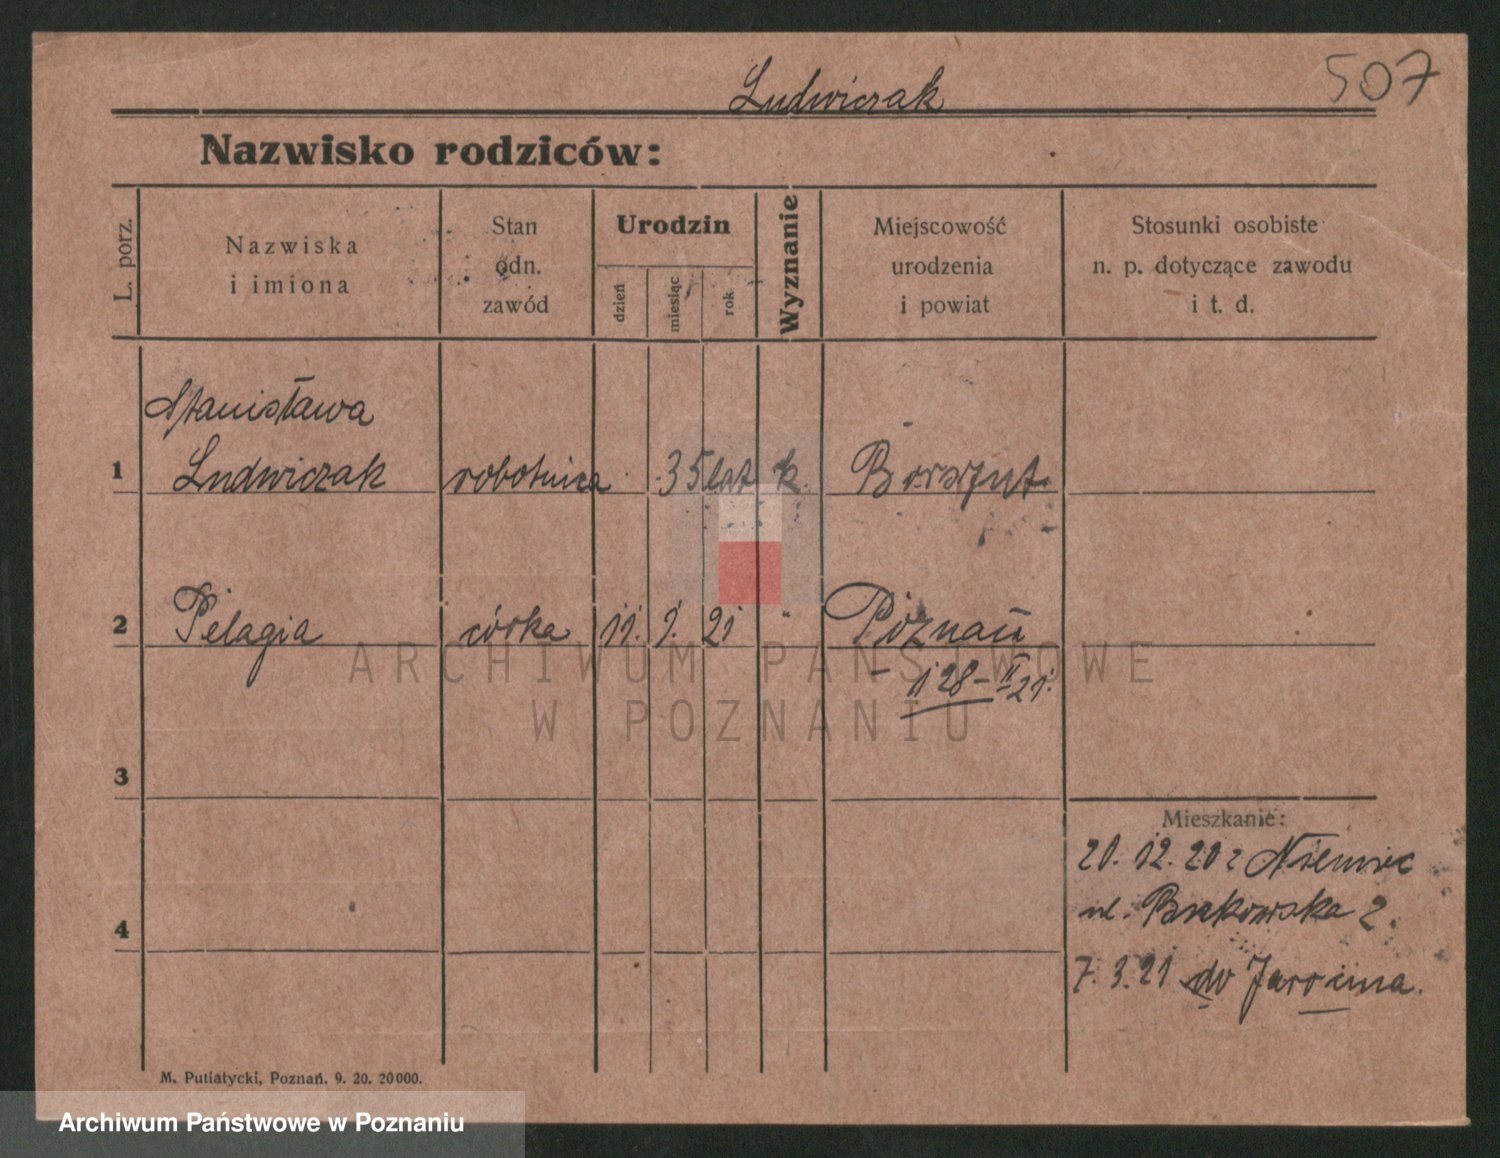 507
Ludwiczak
Nazwisko rodziców:
L. porz.
Nazwiska
i imiona
Stan
odn.
zawód
Urodzin
dzień
miesiąc
rok
Wyznanie
Miejscowość
urodzenia
i powiat
Stosunki osobiste
n. p. dotyczące zawodu
i t. d.
Stanisława
1 Ludwiczak robotnica 35 lat k.
2 Pelagia córka 11. 1. 21 " Poznań
128 - II 21.
3
4
Mieszkanie:
20. 12. 20 z Niemiec
ul. Bukowska 2.
7. 3. 21 do Jarocina.
M. Putiatycki, Poznań. 9. 20. 20000.
ARCHIWUM PAŃSTWOWE
W POZNANIU
Archiwum Państwowe w Poznaniu